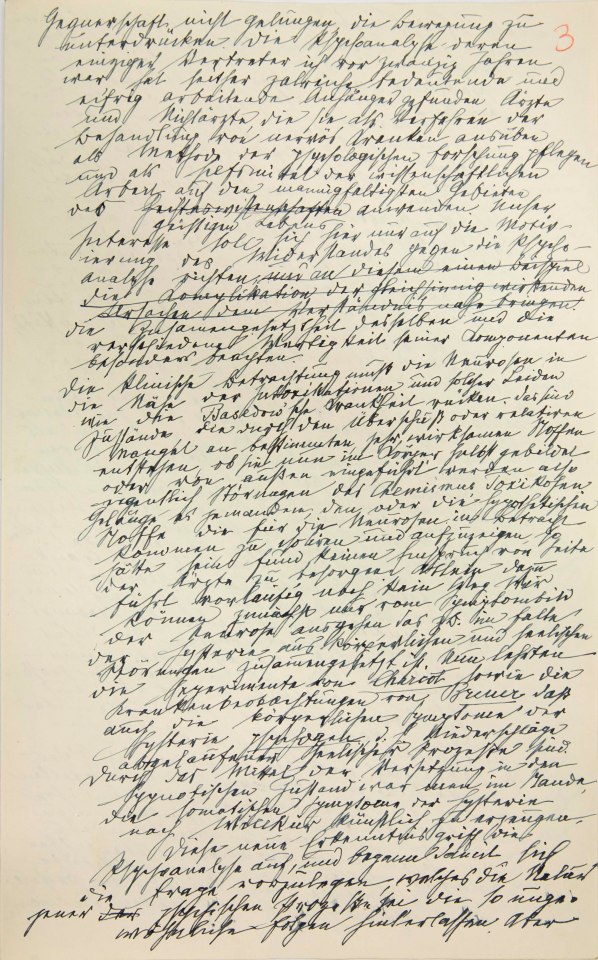 3
Gegnerschaft nicht gelungen, die Bewegung zu
unterdrücken. Die Psychoanalyse deren
einziger Vertreter ich vor zwanzig Jahren
war hat seither zalreiche bedeutende und
eifrig arbeitende Anhänger gefunden Ärzte
und Nichtärzte die sie als Verfahren der
Behandlung von nervös Kranken ausüben
als Methode der psychologischen Forschung pflegen
und als Hilfsmittel der wissenschaftlichen
Arbeit auf den mannigfaltigsten Gebieten
des Geisteswissenschaften anwenden. Unser
geistigen Lebens
Interesse soll sich hier nur auf die Motiv-
ierung des Widerstandes gegen die Psycho-
analyse richten, und an diesem einen Beispiel
die Komplikation der gleichsinnig wirkenden
Ursachen dem Verständnis nahe bringen.
die Zusamengesetztheit desselben und die
verschiedene Wertigkeit seiner Componenten
besonders beachten.
Die klinische Betrachtung muß die Neurosen in
die Nähe der Intoxikationen und solcher Leiden
wie die Basedow'sche Krankheit rücken. Das sind
Zustände, die durch den Überschuß oder relativen
Mangel an bestimmten, sehr wirksamen Stoffen
entstehen, ob sie nun im Körper selbst gebildet
oder von außen eingeführt werden also
eigentlich Störungen des Chemismus Toxikosen
Gelänge es jemandem, den oder die hypothetischen
Stoffe die für die Neurosen in Betracht
kommen zu isoliren und aufzuzeigen, so
hätte sein Fund keinen Einspruch von Seite
der Ärzte zu besorgen. Allein dazu
führt vorläufig noch kein Weg. Wir
können zunächst nur vom Symptombild
der Neurose ausgehen das zB. im Falle
der Hysterie aus körperlichen und seelischen
Störungen zusamengesetzt ist. Nun lehrten
die Experimente von Charcot sowie die
Krankenbeobachtungen von Breuer daß
auch die körperlichen Symptome der
Hysterie psychogen, d.i. Niederschläge
abgelaufener seelischer Prozeße sind.
Durch das Mittel der Versetzung in den
hypnotischen Zustand war man im Stande,
die somatischen Symptome der Hysterie
nach Willkür künstlich zu erzeugen.
Diese neue Erkenntnis griff die
Psychoanalyse auf, und begann damit sich
die Frage vorzulegen, welches die Natur
jener der psychischen Prozeße sei die so unge-
wöhnliche Folgen hinterlassen. Aber